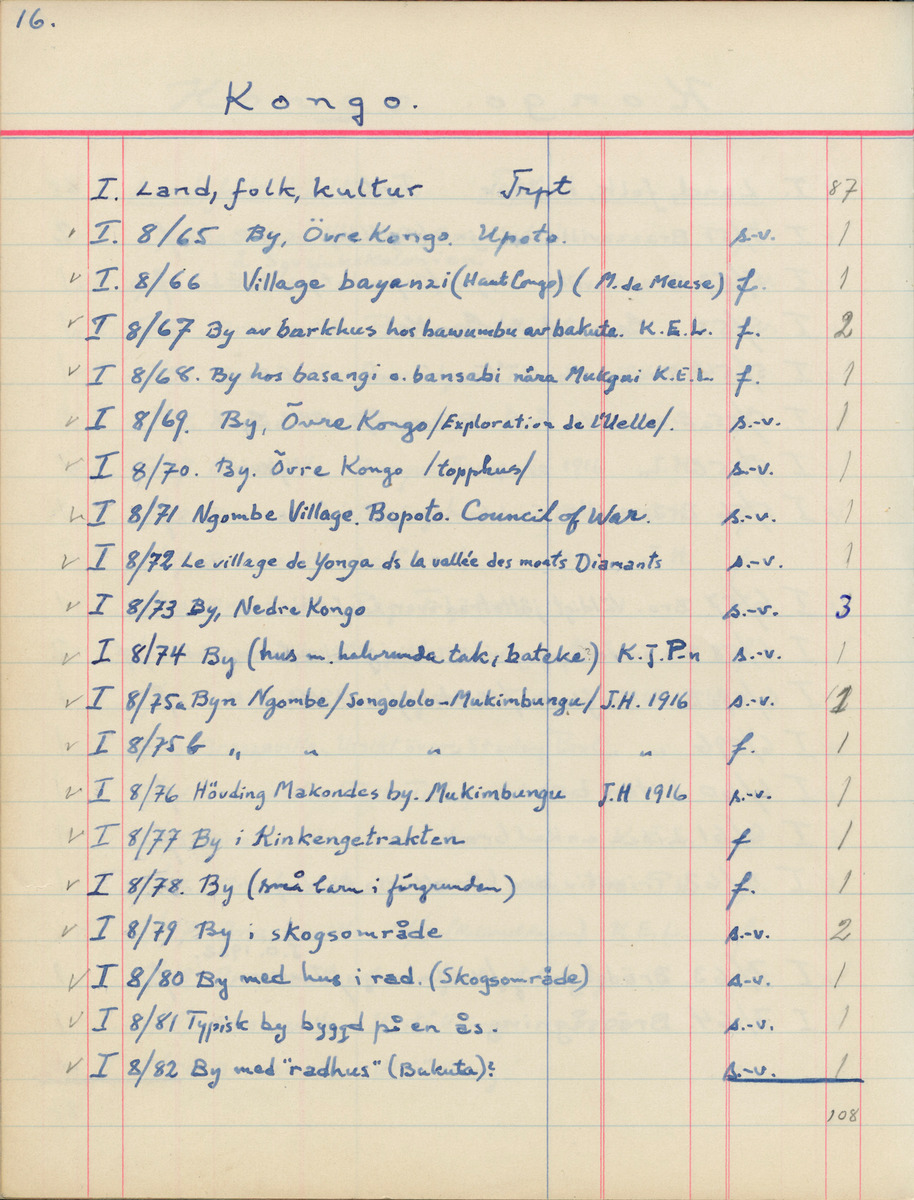 16.
Kongo.
I. Land, folk, kultur Trpt 87
I. 8/65 By, Övre Kongo. Upoto. s.-v. 1
√ I. 8/66 Village bayanzi (Haut Congo) (M. de Meuse) f. 1
√ I 8/67 By av barkhus hos bawumbu av bakuta. K.E.L. f. 2
√ I 8/68. By hos basangi o. bansabi nära Mukgni K.E.L. f. 1
√ I 8/69. By, Övre Kongo /Exploration de l'Uelle/. s.-v. 1
√ I 8/70. By. Övre Kongo /topphus/ s.-v. 1
√ I 8/71 Ngombe Village. Bopoto. Council of War. s.-v. 1
√ I 8/72 Le village de Yonga ds la vallée des monts Diamants s.-v. 1
√ I 8/73 By, Nedre Kongo s.-v. 3
√ I 8/74 By (hus m. halvrunda tak, bateke) K.J.P-n s.-v. 1
√ I 8/75a Byn Ngombe /Songololo-Mukimbungu/ J.H. 1916 s.-v. 1
√ I 8/75 b " " " " f. 1
√ I 8/76 Hövding Makondes by. Mukimbungu J.H 1916 s.-v. 1
√ I 8/77 By i Kinkengetrakten f 1
√ I 8/78. By (små barn i förgrunden) f. 1
√ I 8/79 By i skogsområde s.-v. 2
√ I 8/80 By med hus i rad. (Skogsområde) s.-v. 1
√ I 8/81 Typisk by byggd på en ås. s.-v. 1
√ I 8/82 By med "radhus" (Bakuta)? s.-v. 1
108